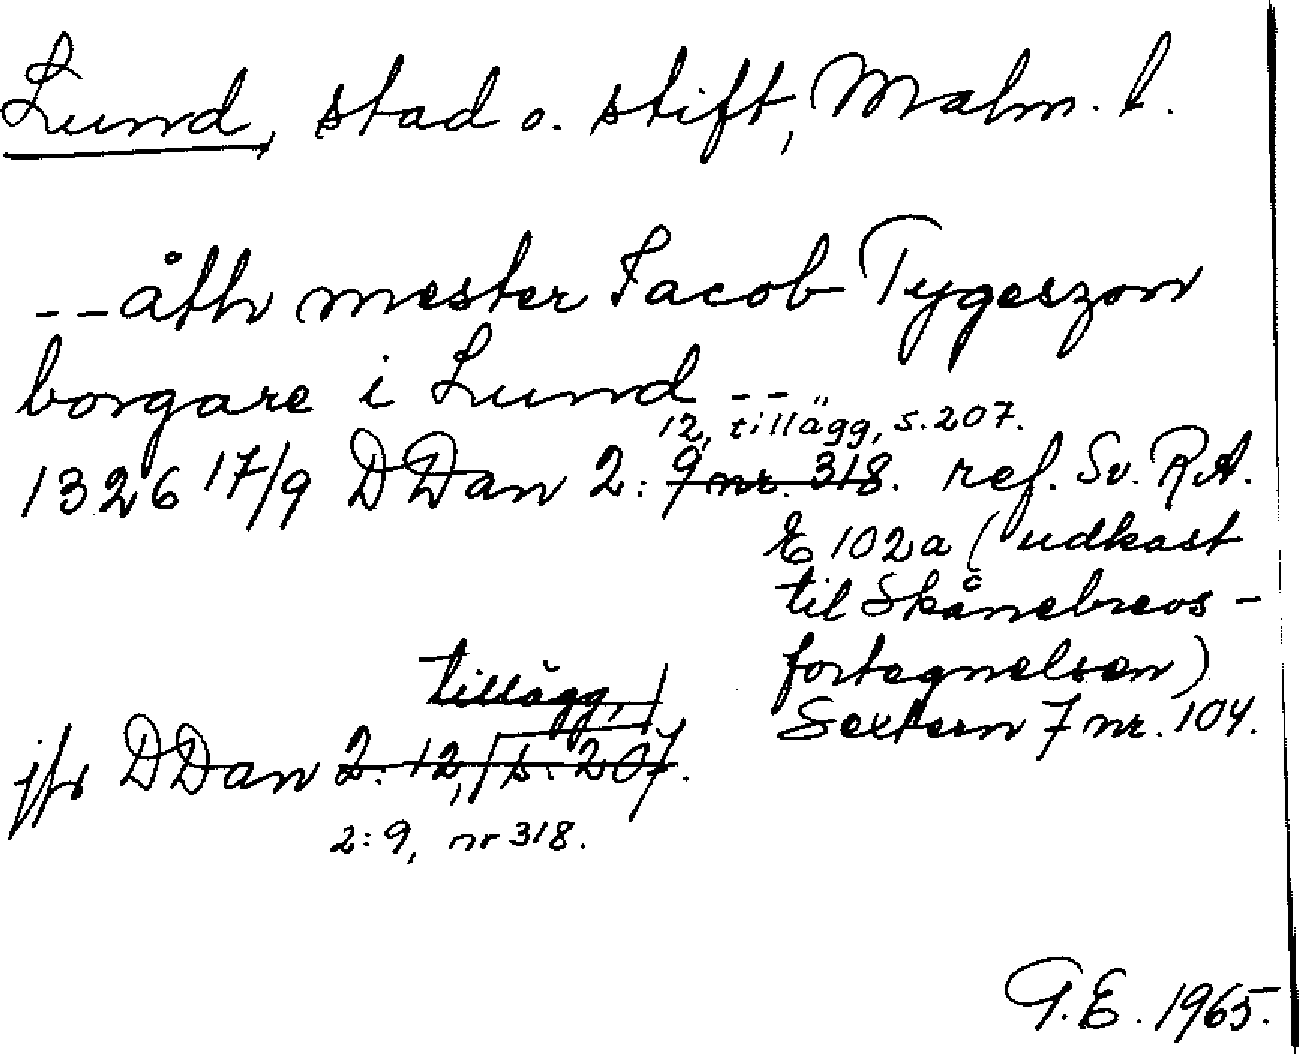 Lund, stad o. stift, Malm. l.
-- åth mester Jacob Tygeszon
borgare i Lund --
12, tillägg, s. 207.
1326 17/9 DDan 2: 9 nr. 318. ref. Sv. RA.
E 102a (udkast
til Skånebrevs-
fortegnelsen)
Sextern 7 nr. 104.
tillägg,
jfr DDan 2: 12, s. 207.
2:9, nr 318.
G.E. 1965.